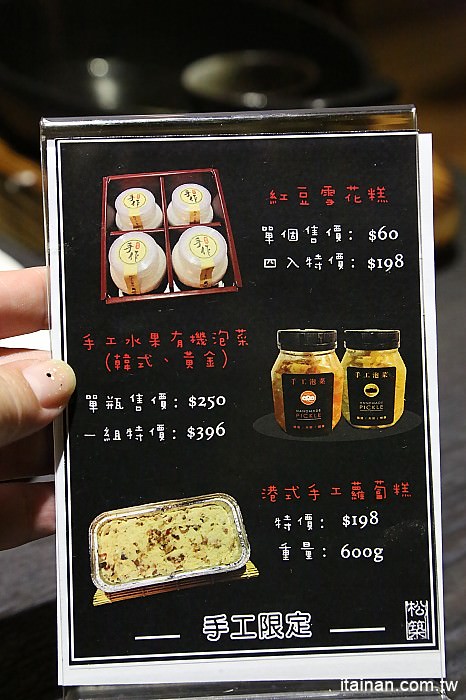 紅豆雪花糕
單個售價: $60
四入特價: $198
手作
手作
手作
手作
手工水果有機泡菜
(韓式、黃金)
單瓶售價: $250
一組特價: $396
手工泡菜
HANDMADE
PICKLE
手工泡菜
HANDMADE
PICKLE
港式手工蘿蔔糕
特價: $198
重量: 600g
手工限定
松築
itainan.com.tw